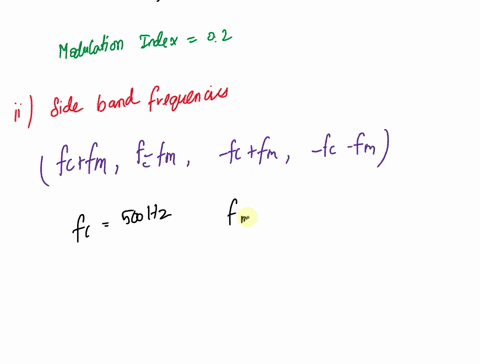 Modulation Index = 0.2
ii) Side band frequencies
(fc+fm, fc-fm, -fc+fm, -fc-fm)
fc = 500Hz fm